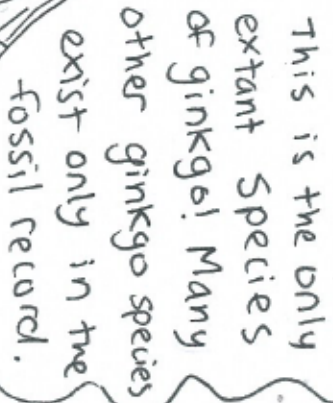 This is the only
extant species
of ginkgo! Many
other ginkgo species
exist only in the
fossil record.